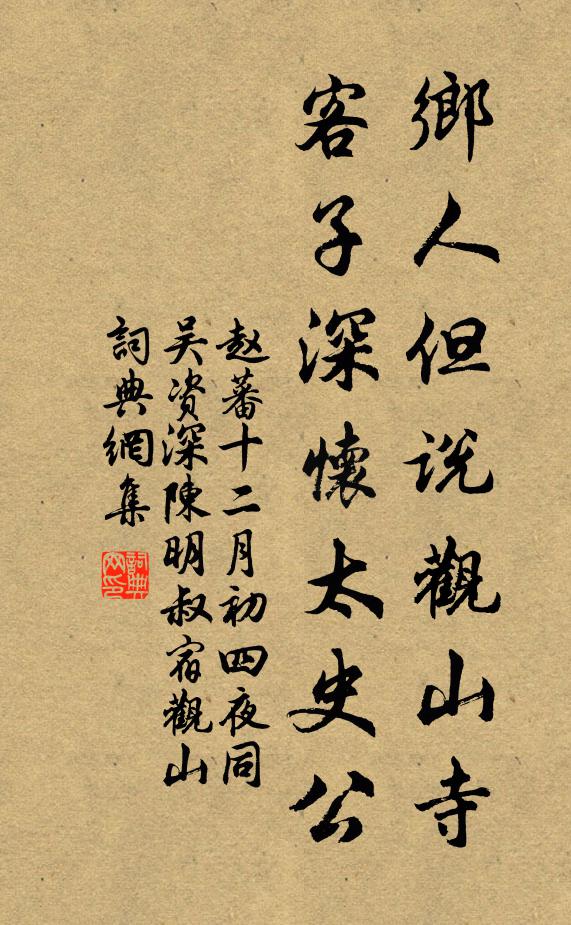 鄉人但説觀山寺
客子深懷太史公
赵蕃十二月初四夜同
吴資深陳明叔宿觀山
詞典網集
詞典網印